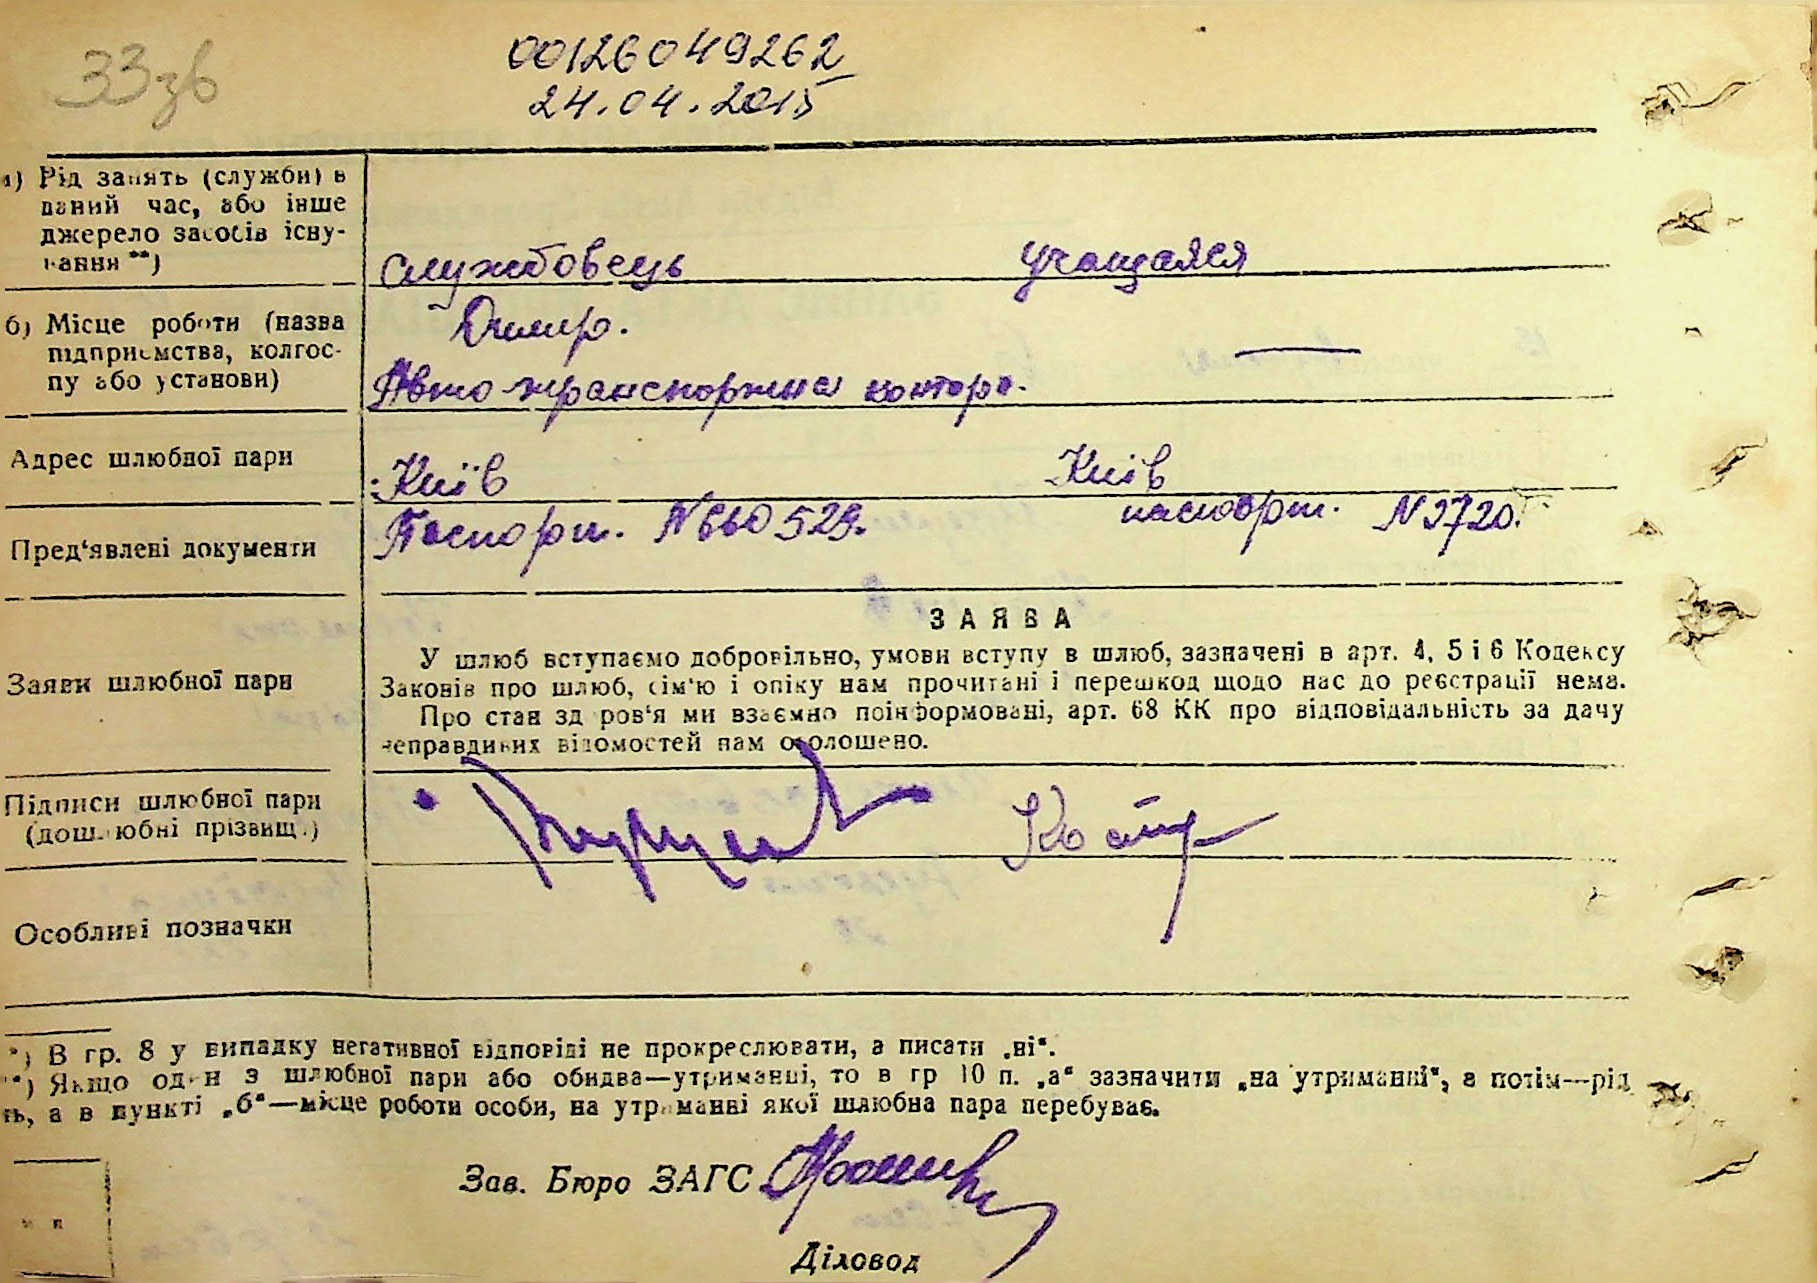 33зв
00126049262
24.04.2015
а) Рід занять (служби) в
даний час, або інше
джерело засобів існу-
вання **)
службовець учащаяся
б) Місце роботи (назва
підприємства, колгос-
пу або установи)
Димер.
Авто транспортна контора.
Адрес шлюбної пари
Київ Київ
Пред'явлені документи
Паспорт. N 660529. паспорт. N 2720.
ЗАЯВА
Заяви шлюбної пари
У шлюб вступаємо добровільно, умови вступу в шлюб, зазначені в арт. 4, 5 і 6 Кодексу
Законів про шлюб, сім'ю і опіку нам прочитані і перешкод щодо нас до реєстрації нема.
Про стан здоров'я ми взаємно поінформовані, арт. 68 КК про відповідальність за дачу
неправдивих відомостей нам оголошено.
Підписи шлюбної пари
(дошлюбні прізвищ.)
Особливі позначки
*) В гр. 8 у випадку негативної відповіді не прокреслювати, а писати „ні“.
**) Якщо один з шлюбної пари або обидва—утриманці, то в гр 10 п. „а“ зазначити „на утриманні“, а потім—рід
ть, а в пункті „б“—місце роботи особи, на утриманні якої шлюбна пара перебуває.
Зав. Бюро ЗАГС
Діловод